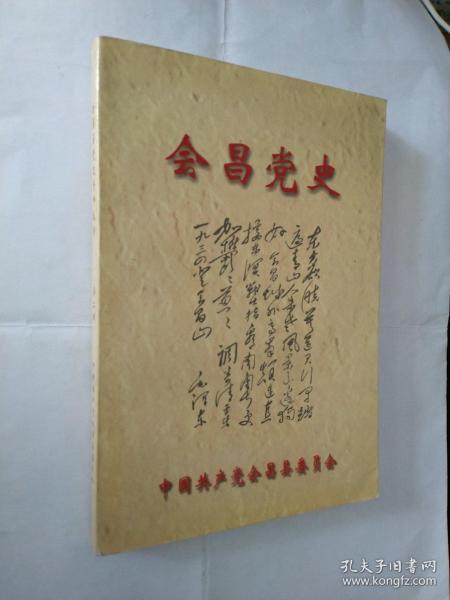 会昌党史
东方欲晓莫道君行早踏
遍青山人未老风景这边独
好 会昌城外高峰颠连直
接东溟战士指看南粤更
加郁々葱々 调寄清平乐
一九三四年登会昌山 毛泽东
中国共产党会昌县委员会
孔夫子旧书网
www.kongfz.com